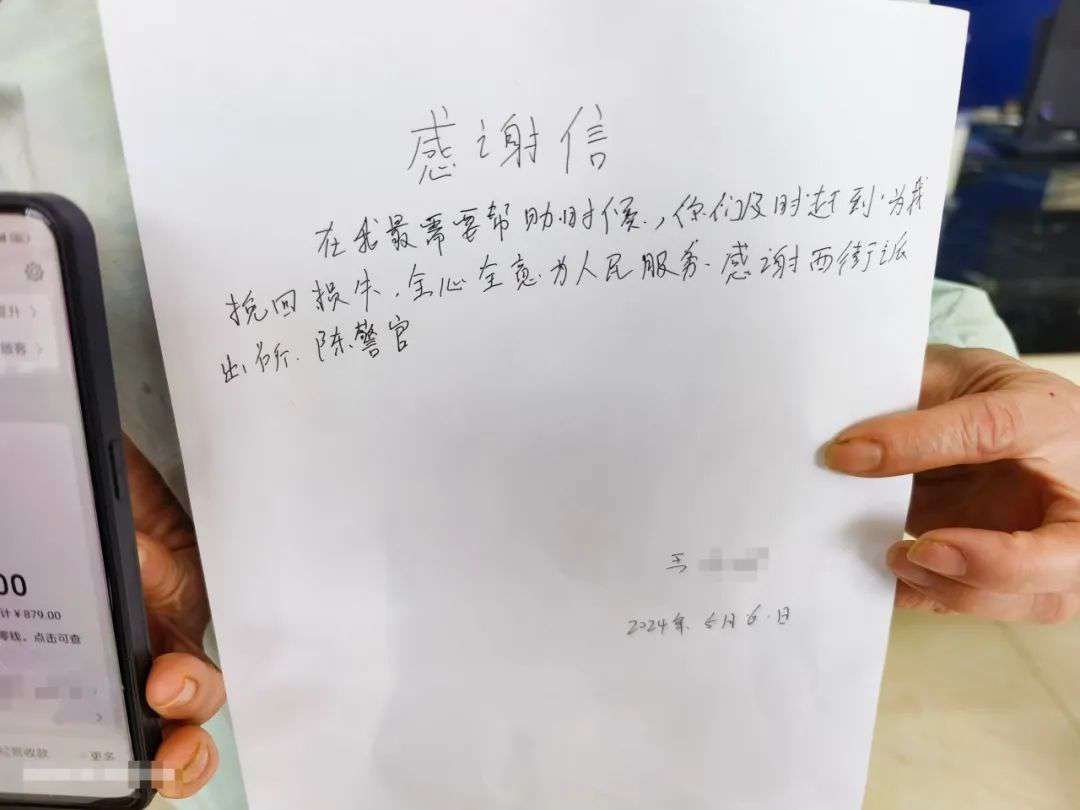 感谢信
在我最需要帮助时候,你们及时赶到为我
挽回损失,全心全意为人民服务.感谢西街派
出所.陈警官
王
2024年5月6日
提升
顾客
00
计¥879.00
零钱,点击可查
经营收款
更多